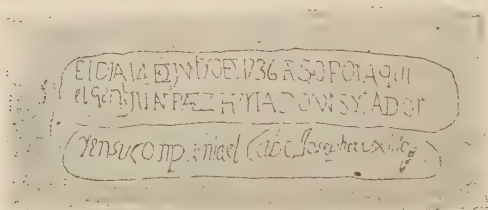 El DIA 14 DE JVLIO DE 1736 PASO POR AQUI
el Genl JUAN PAEZ HVRTADO VISYTADOR
Y en su conpania el Cabo Joseph truxillo